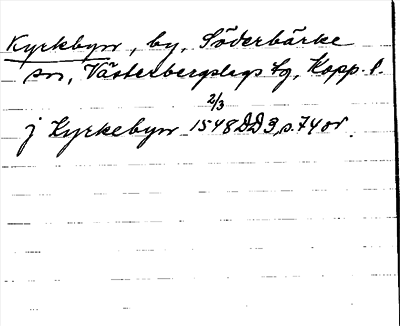 Kyrkbyn, by, Söderbärke
sn, Västerbergslags tg, Kopp. l.
2/3
j Kyrkebyn 1548 DD 3, s. 74 or.